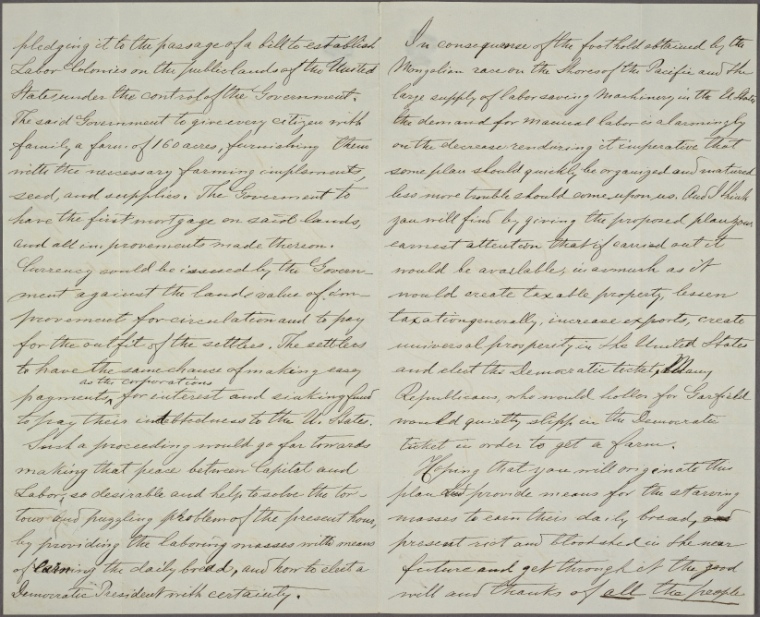 pledging it to the passage of a bill to establish
Labor Colonies on the public lands of the United
States under the control of the Government.
The said Government to give every citizen with
family a farm of 160 acres, furnishing them
with the necessary farming implements,
seed, and supplies. The Government to
have the first mortgage on said lands,
and all improvements made thereon.
Currency would be issued by the Govern-
ment against the lands value of im-
provement for circulation and to pay
for the outfit of the settlers. The settlers
to have the same chance of making easy
as the corporations
payments, for interest and sinking fund
to pay their indebtedness to the U. States.
Such a proceeding would go far towards
making that peace between Capital and
Labor, so desirable and help to solve the tor-
tous and puzzling problem of the present hour,
by providing the laboring masses with means
of earning the daily bread, and how to elect a
Democratic President with certainty.
In consequence of the foothold obtained by the
Mongolian race on the Shores of the Pacific and the
large supply of labor saving Machinery in the U. States
the demand for manual labor is alarmingly
on the decrease rendering it imperative that
some plan should quickly be organized and matured
less more trouble should come upon us. And I think
you will find by giving the proposed plan your
earnest attention that if carried out it
would be available, in as much as it
would create taxable property, lessen
taxation generally, increase exports, create
universal prosperity in the United States
and elect the Democratic ticket, Many
Republicans, who would hollor for Garfield
would quietly slipp in the Democratic
ticket in order to get a farm.
Hoping that you will originate this
plan and provide means for the starving
masses to earn their daily bread, and
present riot and bloodshed in the near
future and get through it the good
will and thanks of all the people